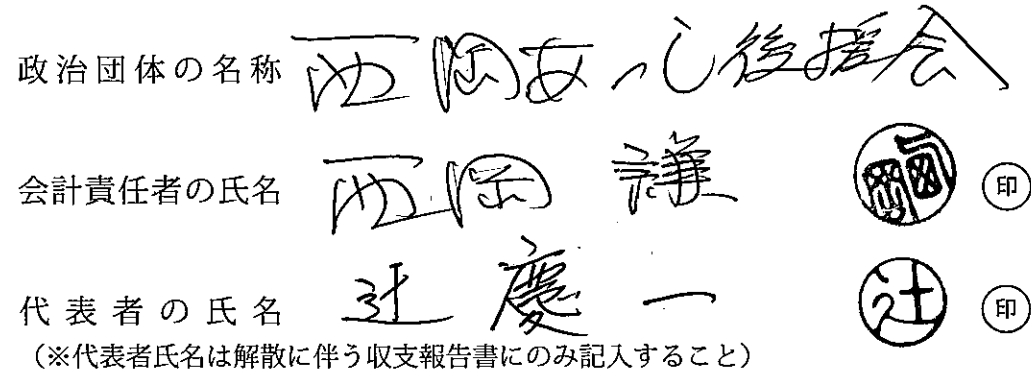 政治団体の名称 西岡あつし後援会
会計責任者の氏名 西岡 謙 印
代表者の氏名 辻 慶一 辻 印
（※代表者氏名は解散に伴う収支報告書にのみ記入すること）